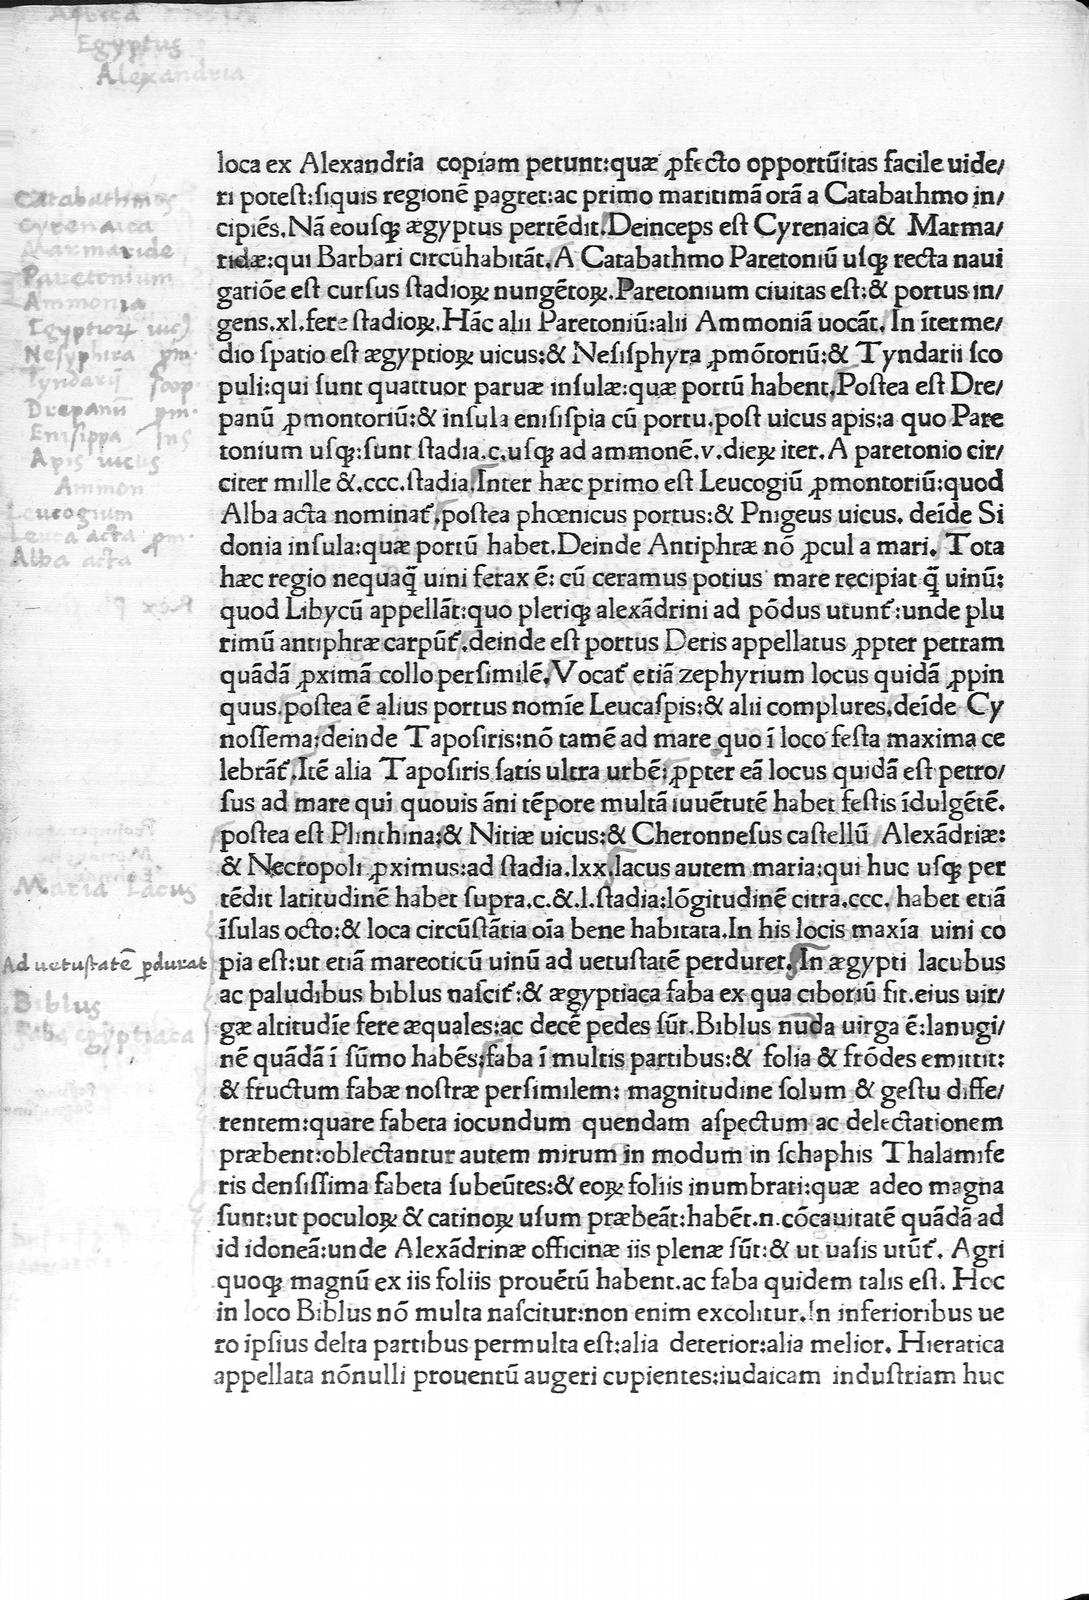 Egyptus
Alexandria
loca ex Alexandria copiam petunt:quæ ꝓfecto opportūitas facile uide/
ri poteſt:ſiquis regionē ꝑagret:ac primo maritimā orā a Catabathmo in/
cipiēs.Nā eouſqꝫ ægyptus pertēdit.Deinceps eſt Cyrenaica & Marma/
ridæ:qui Barbari circūhabitāt.A Catabathmo Paretoniū uſqꝫ recta naui
gatiōe eſt curſus ſtadioꝝ nungētoꝝ.Paretonium ciuitas eſt:& portus in/
gens.xl.fere ſtadioꝝ.Hāc alii Paretoniū:alii Ammoniā uocāt.In īterme/
dio ſpatio eſt ægyptioꝝ uicus:& Neſiſphyra ꝓmōtoriū:& Tyndarii ſco
puli:qui ſunt quattuor paruæ inſulæ:quæ portū habent.Poſtea eſt Dre/
panū ꝓmontoriū:& inſula eniſiſpia cū portu.poſt uicus apis:a quo Pare
tonium uſqꝫ:ſunt ſtadia.c.uſqꝫ ad ammonē.v.dieꝝ iter.A paretonio cir/
citer mille &.ccc.ſtadia.Inter hæc primo eſt Leucogiū ꝓmontoriū:quod
Alba acta nominat᷑.poſtea phœnicus portus:& Pnigeus uicus. deīde Si
donia inſula:quæ portū habet.Deinde Antiphræ nō ꝓcul a mari. Tota
hæc regio nequaq̄ uini ferax ē: cū ceramus potius mare recipiat q̄ uinū:
quod Libycū appellāt:quo pleriqꝫ alexādrini ad pōdus utunt᷑:unde plu
rimū antiphræ carpūt᷑.deinde eſt portus Deris appellatus ꝓpter petram
quādā ꝓximā collo perſimilē.Vocat᷑ etiā zephyrium locus quidā ꝓpin
quus.poſtea ē alius portus nomīe Leucaſpis:& alii complures.deīde Cy
noſſema:deinde Tapoſiris:nō tamē ad mare quo ī loco feſta maxima ce
lebrāt᷑.Itē alia Tapoſiris ſatis ultra urbē:ꝓpter eā locus quidā eſt petro/
ſus ad mare qui quouis āni tēpore multā iuuētutē habet feſtis īdulgētē.
poſtea eſt Plinthina:& Nitiæ uicus:& Cheronneſus caſtellū Alexādriæ:
& Necropoli ꝓximus:ad ſtadia.lxx.lacus autem maria:qui huc uſqꝫ per
tēdit latitudinē habet ſupra.c.&.l.ſtadia:lōgitudinē citra.ccc. habet etiā
īſulas octo:& loca circūſtātia oīa bene habitata.In his locis maxīa uini co
pia eſt:ut etiā mareoticū uinū ad uetuſtatē perduret.In ægypti lacubus
ac paludibus biblus naſcit᷑:& ægyptiaca faba ex qua ciboriū fit.eius uir/
gæ altitudīe fere æquales:ac decē pedes ſūt.Biblus nuda uirga ē:lanugi/
nē quādā ī ſūmo habēs.faba ī multis partibus:& folia & frōdes emittit:
& fructum fabæ noſtræ perſimilem: magnitudine ſolum & geſtu diffe/
rentem:quare fabeta iocundum quendam aſpectum ac delectationem
præbent:oblectantur autem mirum in modum in ſchaphis Thalamife
ris denſiſſima fabeta ſubeūtes:& eoꝝ foliis inumbrati:quæ adeo magna
ſunt:ut poculoꝝ & catinoꝝ uſum præbeāt:habēt.n.cōcauitatē quādā ad
id idoneā:unde Alexādrinæ officinæ iis plenæ ſūt:& ut uaſis utūt᷑. Agri
quoqꝫ magnū ex iis foliis prouētū habent.ac faba quidem talis eſt. Hoc
in loco Biblus nō multa naſcitur:non enim excolitur.In inferioribus ue
ro ipſius delta partibus permulta eſt:alia deterior:alia melior. Hieratica
appellata nōnulli prouentū augeri cupientes:iudaicam induſtriam huc
Catabathmos
Cyrenaica
Marmaride
Paretonium
Ammonia
Egyptioꝝ uic9
Neſyphira pm.
Tyndarij ſcop
Drepanū pm.
Eniſippa inſ
Apis uicus
Ammon
Leucogium
Leuca acta pm.
Alba acta
Maria Lacus
Ad uetuſtatē ꝑdurat
Biblus
Faba egyptiaca